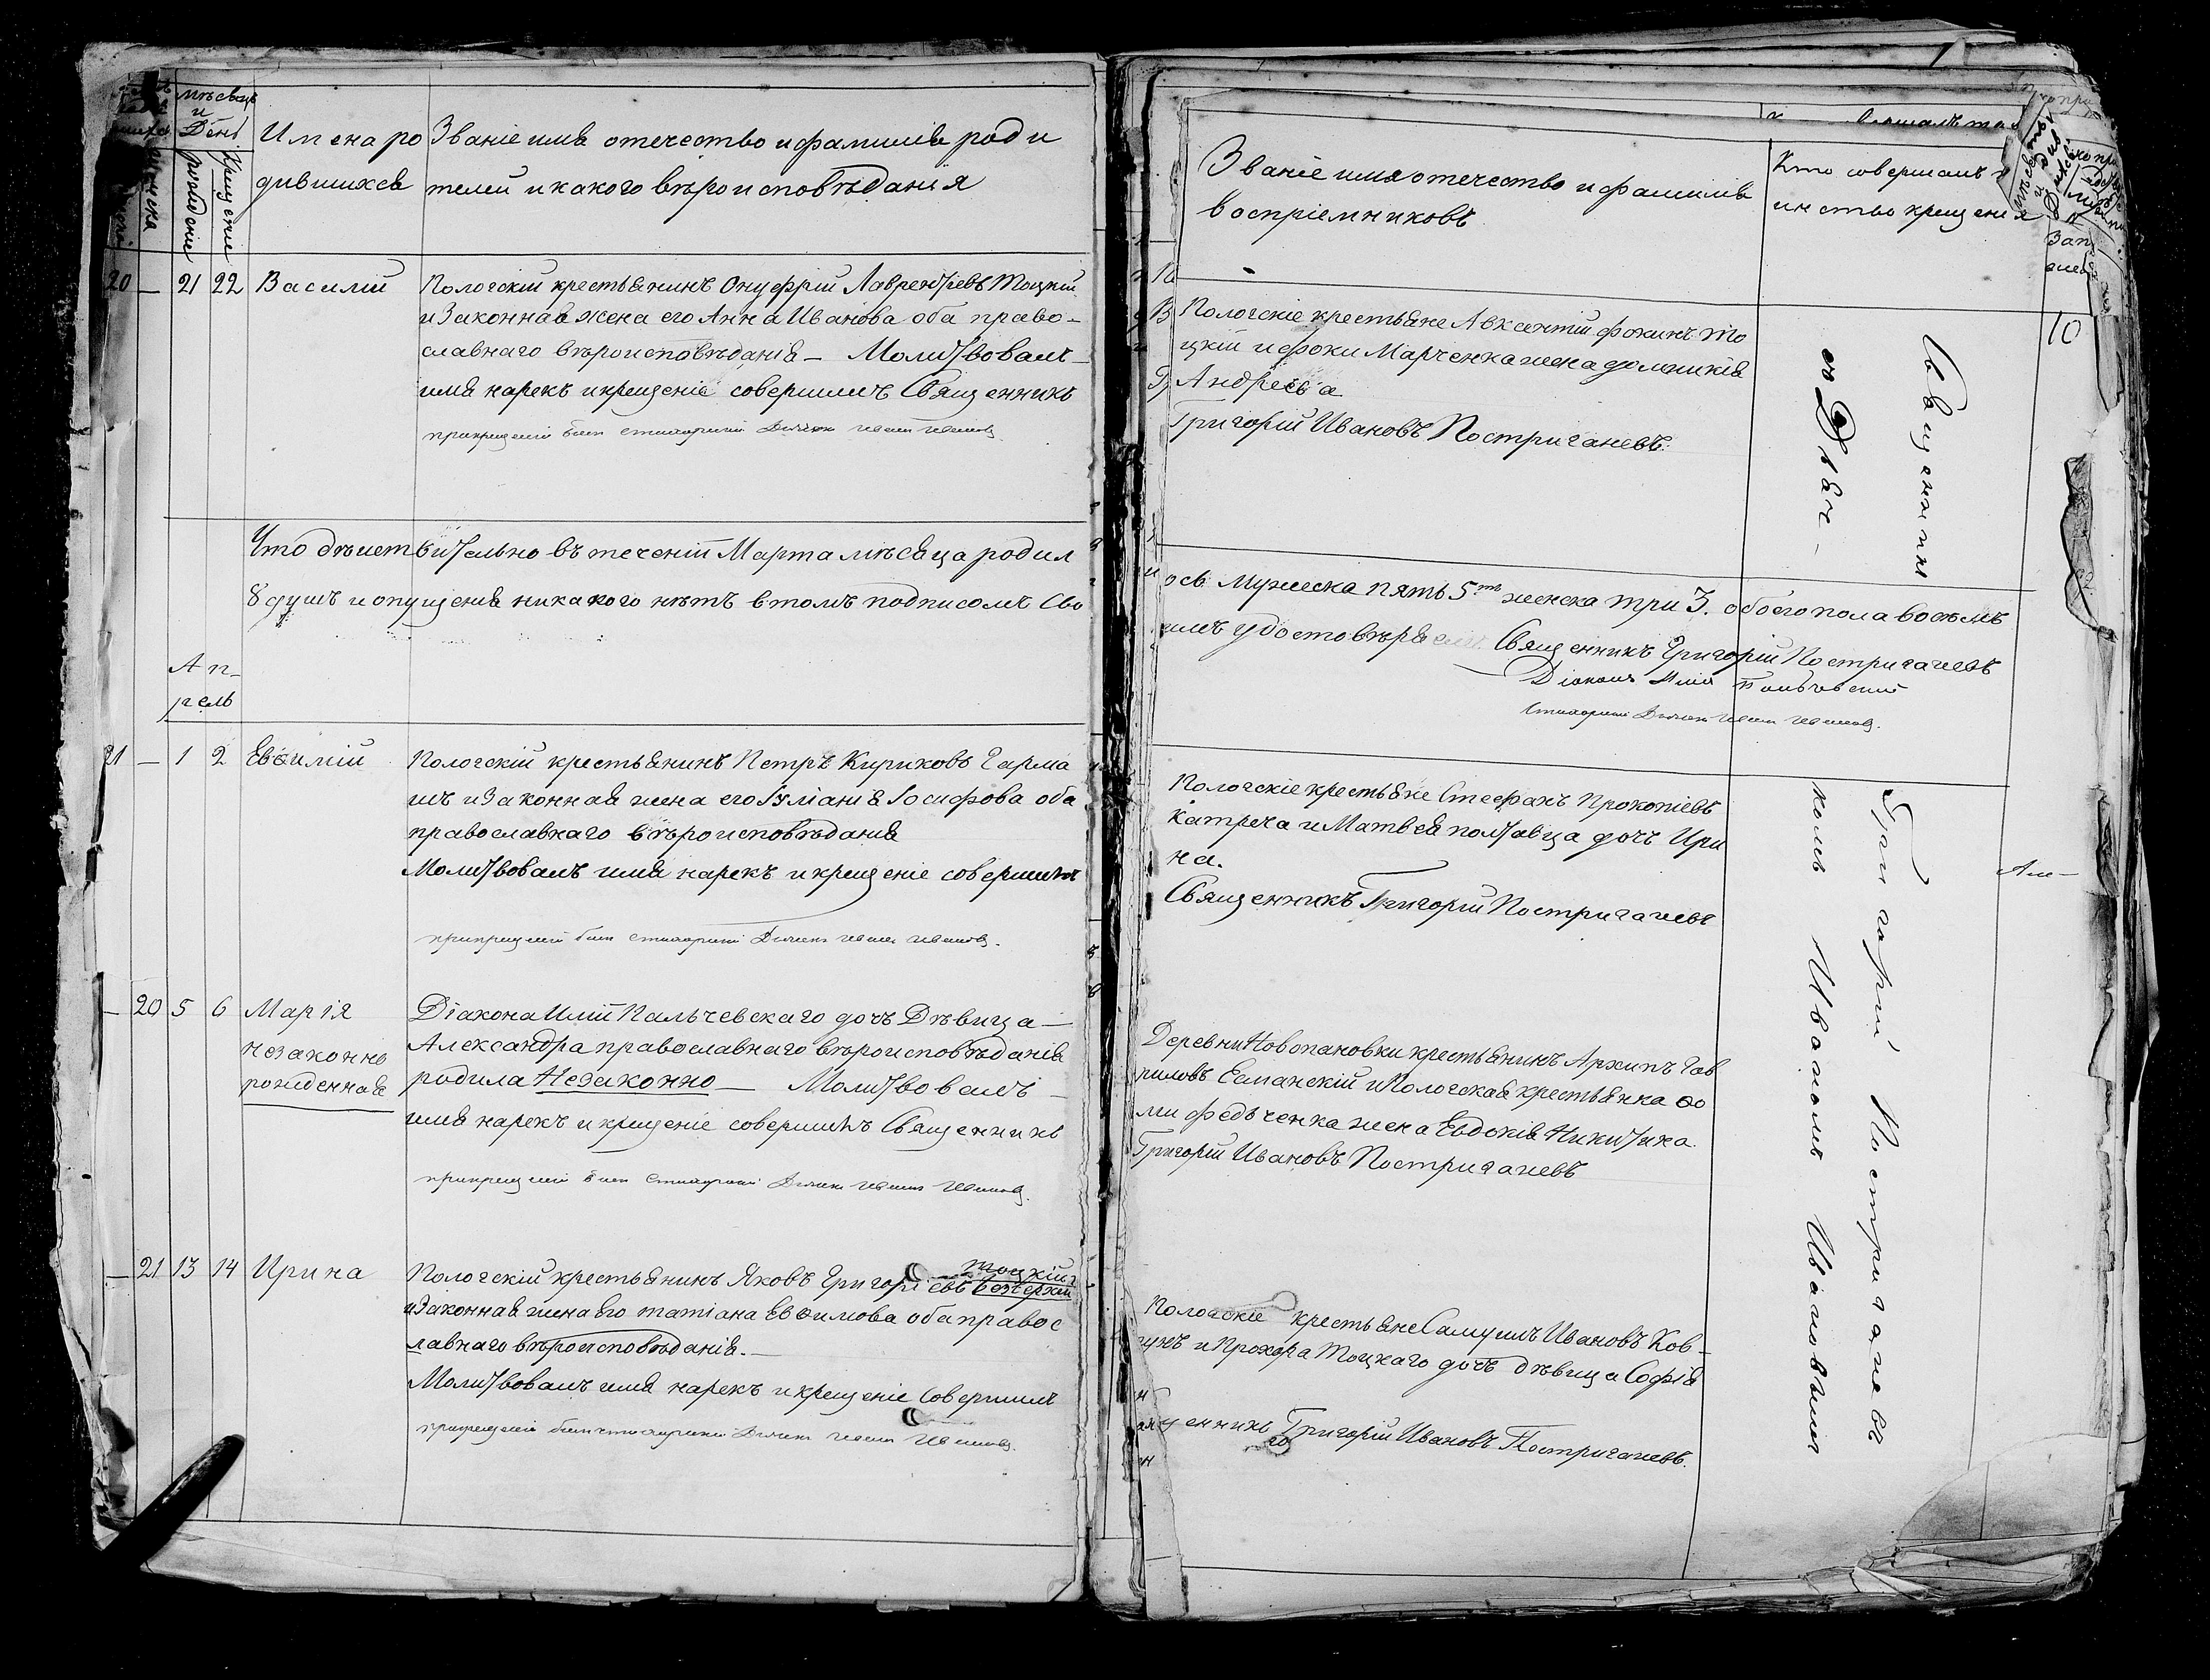 мѣсяцъ
и
День
рожденіе
крещеніе
Имена ро
дившихся
Званіе имя отечество и фамилія роди
телей и какого вѣроисповѣданія
20 — 21 22 Василій
Пологскій крестьянинъ Онуфрій Лаврентіевъ Тоцкій
и Законная жена его Анна Иванова оба право-
славнаго вѣроисповѣданія — Молитвовалъ
имя нарекъ и крещеніе совершилъ Священникъ
Что дѣиствительно въ теченіи Марта мѣсяца родил
8 душъ и опущенія никакого нѣтъ в томъ подписомъ Сво
Ап-
рель
21 — 1 2 Евѳимій
Пологскій крестьянинъ Петръ Кириковъ Гарма
шъ и Законная жена его Іуліанія Іосифова оба
православнаго вѣроисповѣданія
Молитвовалъ имя нарекъ и крещеніе совершилъ
— 20 5 6 Марія
незаконно
рожденная
Діакона Иліи Пальчевскаго дочъ Дѣвица —
Александра православнаго вѣроисповѣданія
родила Незаконно — Молитвовалъ
имя нарекъ и крещеніе совершилъ Священникъ
— 21 13 14 Ирина
Тоцкій
Пологскій крестьянинъ Яковъ Григоріевъ
и Законная жена Его Татіана Евѳимова оба правос
лавнаго вѣроисповѣданія. —
Молитвовалъ имя нарекъ и крещеніе Совершилъ
Званіе имя отечество и фамилія
воспріемниковъ
Кто совершалъ
инство крещенія
Пологскіе крестьяне Авксентій Фокинъ То
цкій и Фоки Марченка жена Домникія
Андреева
Григорій Ивановъ Постригачевъ
10
Священникъ
съ Дьяч-
ось Мужеска пять 5.ть женска три 3. обоего пола восѣмъ
имъ удостовѣряемъ Священникъ Григорій Постригачевъ
Діаконъ Илія
Пологскіе крестьяне Стефанъ Прокопіевъ
Катреча и Матвея полтавца дочъ Ири
на.
Священникъ Григорій Постригачевъ
Деревни Новопановки крестьянинъ Архипъ Гав
риловъ и Пологская крестьянка Ѳо
мы Федьченка жена Евдокія Никитина
Григорій Ивановъ Постригачевъ
Пологскіе крестьяне Самуилъ Ивановъ Ков-
тунъ и Прохора Тоцкаго дочъ дѣвица Софія
ященникъ Григорій Ивановъ Постригачевъ.
Григорій Постригачевъ
комъ Иваномъ Ивановымъ